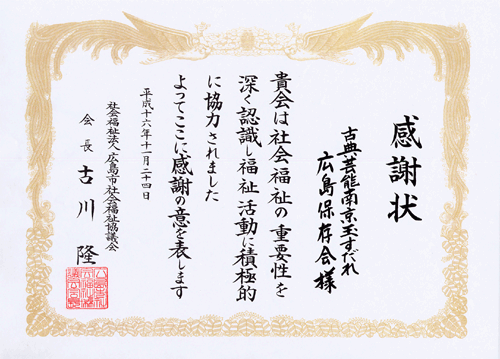 感謝状
古典芸能南京玉すだれ
広島保存会様
貴会は社会福祉の重要性を
深く認識し福祉活動に積極的
に協力されました
よってここに感謝の意を表します
平成十六年十一月二十四日
社会福祉法人広島市社会福祉協議会
会長 古川 隆